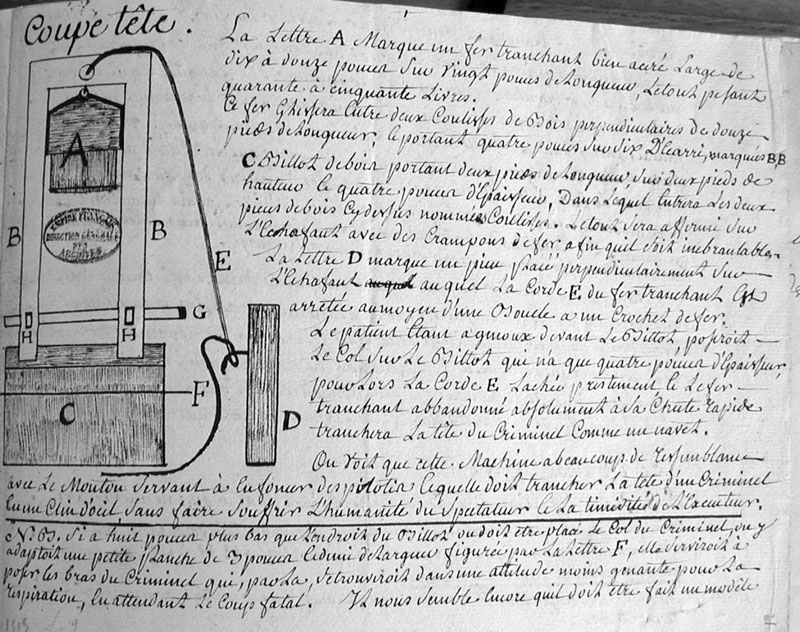 Coupe tête.
La Lettre A Marque un fer tranchant bien aceré Large de
dix à douze pouces Sur Vingt pouces de Longueur, Letout pesant
quarante à cinquante Livres.
Ce fer Glissera Entre deux Coulisses de Bois perpendiculaires de douze
pieds de Longueur, le portant quatre pouces Sur Six D'Ecarri, marqués BB
C Billot de bois portant deux pieds de Longueur, Sur deux pieds de
hauteur le quatre pouces d'Epaisseur, Dans Lequel Entrera Les deux
pieces de bois Cydessus nommées Coulisses. Letout Sera affermi Sur
L'Echafaut avec des Crampons de fer afin quil Soit inebranlable.
La Lettre D marque un pieu placé perpendiculairement Sur
L'Echafaut auquel auquel La Corde E du fer tranchant Est
arretée au moyen d'une Boucle a un Crochet de fer.
Le patient Etant a genoux devant Le Billot, poseroit
Le Col Sur Le Billot qui n'a que quatre pouces d'Epaisseur,
pour Lors La Corde E Lachée prestement, le Lefer
tranchant abbandonné absolument à Sa Chute rapide
tranchera La tête du Criminel Comme un navet.
On Voit que cette Machine a beaucoup de ressemblance
avec Le Mouton Servant à Enfoncer des pilotis Lequelle doit trancher La tête d'un Criminel
En un Clin d'oeil, Sans faire Souffrir L'humanité du Spectateur le La timidité de L'Executeur.
N.B. Si a huit pouces plus bas que L'endroit du Billot ou doit être placé Le Col du Criminel, on y
adaptoit une petite planche de 3 pouces Ledemi de Largeur figurée par La Lettre F, Elle Serviroit à
poser les bras du Criminel qui, par La, Se trouveroit dans une attitude moins genante pour La
respiration, En attendant Le Coup fatal. Il nous Semble Encore quil doit être fait un modèle
A
B
B
EMPIRE FRANÇAIS
DIRECTION GÉNÉRALE
DES
ARCHIVES
E
G
H
H
F
C
D